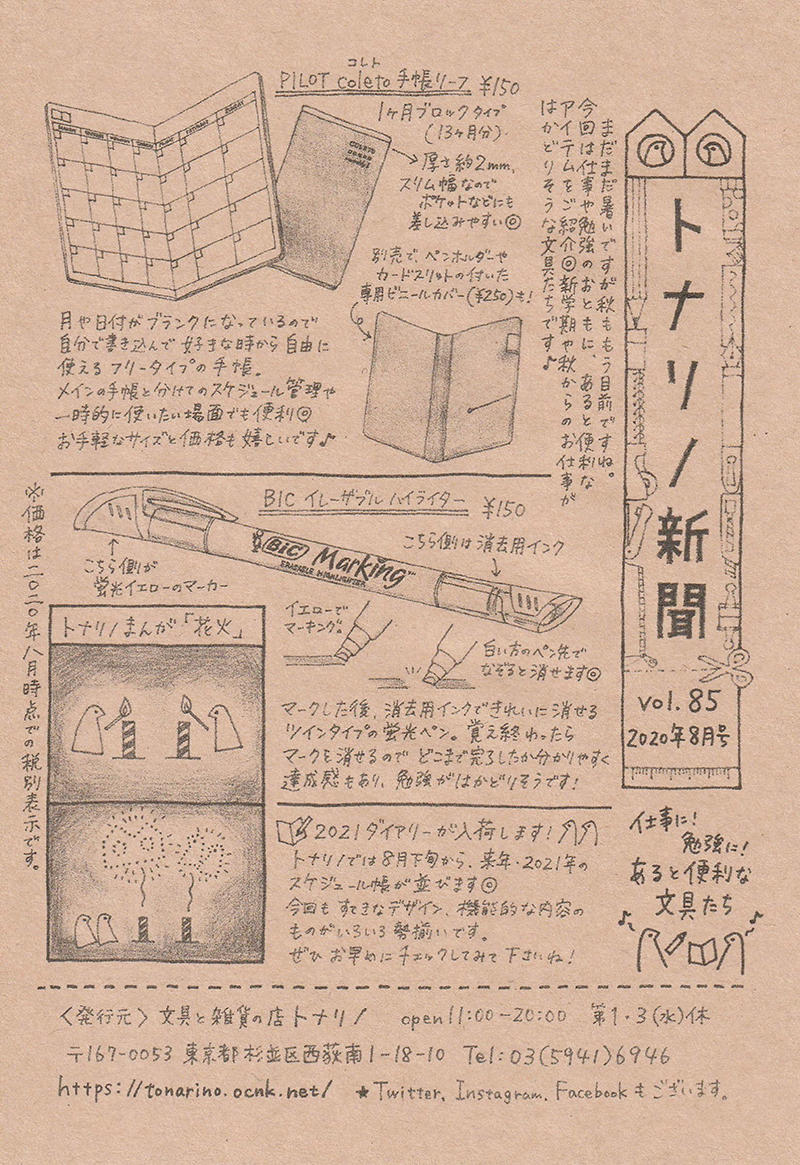 トナリノ新聞
vol. 85
2020年8月号
仕事に!
勉強に!
あると便利な
文具たち
まだまだ暑いですが秋ももう目前ですね。
今回は仕事や勉強のおともに、あると便利な
アイテムをご紹介◎新学期や秋からのお仕事が
はかどりそうな文具たちです♪
コレト
PILOT coleto 手帳リーフ ¥150
1ヶ月ブロックタイプ
(13ヶ月分)
厚さ約2mm、
スリム幅なので
ポケットなどにも
差し込みやすい◎
別売で、ペンホルダーや
カードスリットの付いた
専用ビニールカバー(¥250)も!
月や日付がブランクになっているので
自分で書き込んで好きな時から自由に
使えるフリータイプの手帳。
メインの手帳と分けてのスケジュール管理や
一時的に使いたい場面でも便利◎
お手軽なサイズと価格も嬉しいです♪
BIC イレーザブル ハイライター ¥150
こちら側が
蛍光イエローのマーカー
BIC Marking™
ERASABLE HIGHLIGHTER
こちら側は消去用インク
イエローで
マーキング。
白い方のペン先で
なぞると消せます◎
マークした後、消去用インクできれいに消せる
ツインタイプの蛍光ペン。覚え終わったら
マークを消せるので どこまで完了したか分かりやすく
達成感もあり、勉強がはかどりそうです!
トナリノまんが「花火」
2021ダイアリーが入荷します!
トナリノでは8月下旬から、来年・2021年の
スケジュール帳が並びます◎
今回も すてきなデザイン、機能的な内容の
ものがいろいろ勢揃いです。
ぜひ お早めにチェックしてみて下さいね!
※価格は二〇二〇年八月時点での税別表示です。
〈発行元〉文具と雑貨の店トナリノ open 11:00-20:00 第1・3(水)休
〒167-0053 東京都杉並区西荻南1-18-10 Tel:03(5941)6946
https://tonarino.ocnk.net/ ★Twitter、Instagram、Facebookもございます。